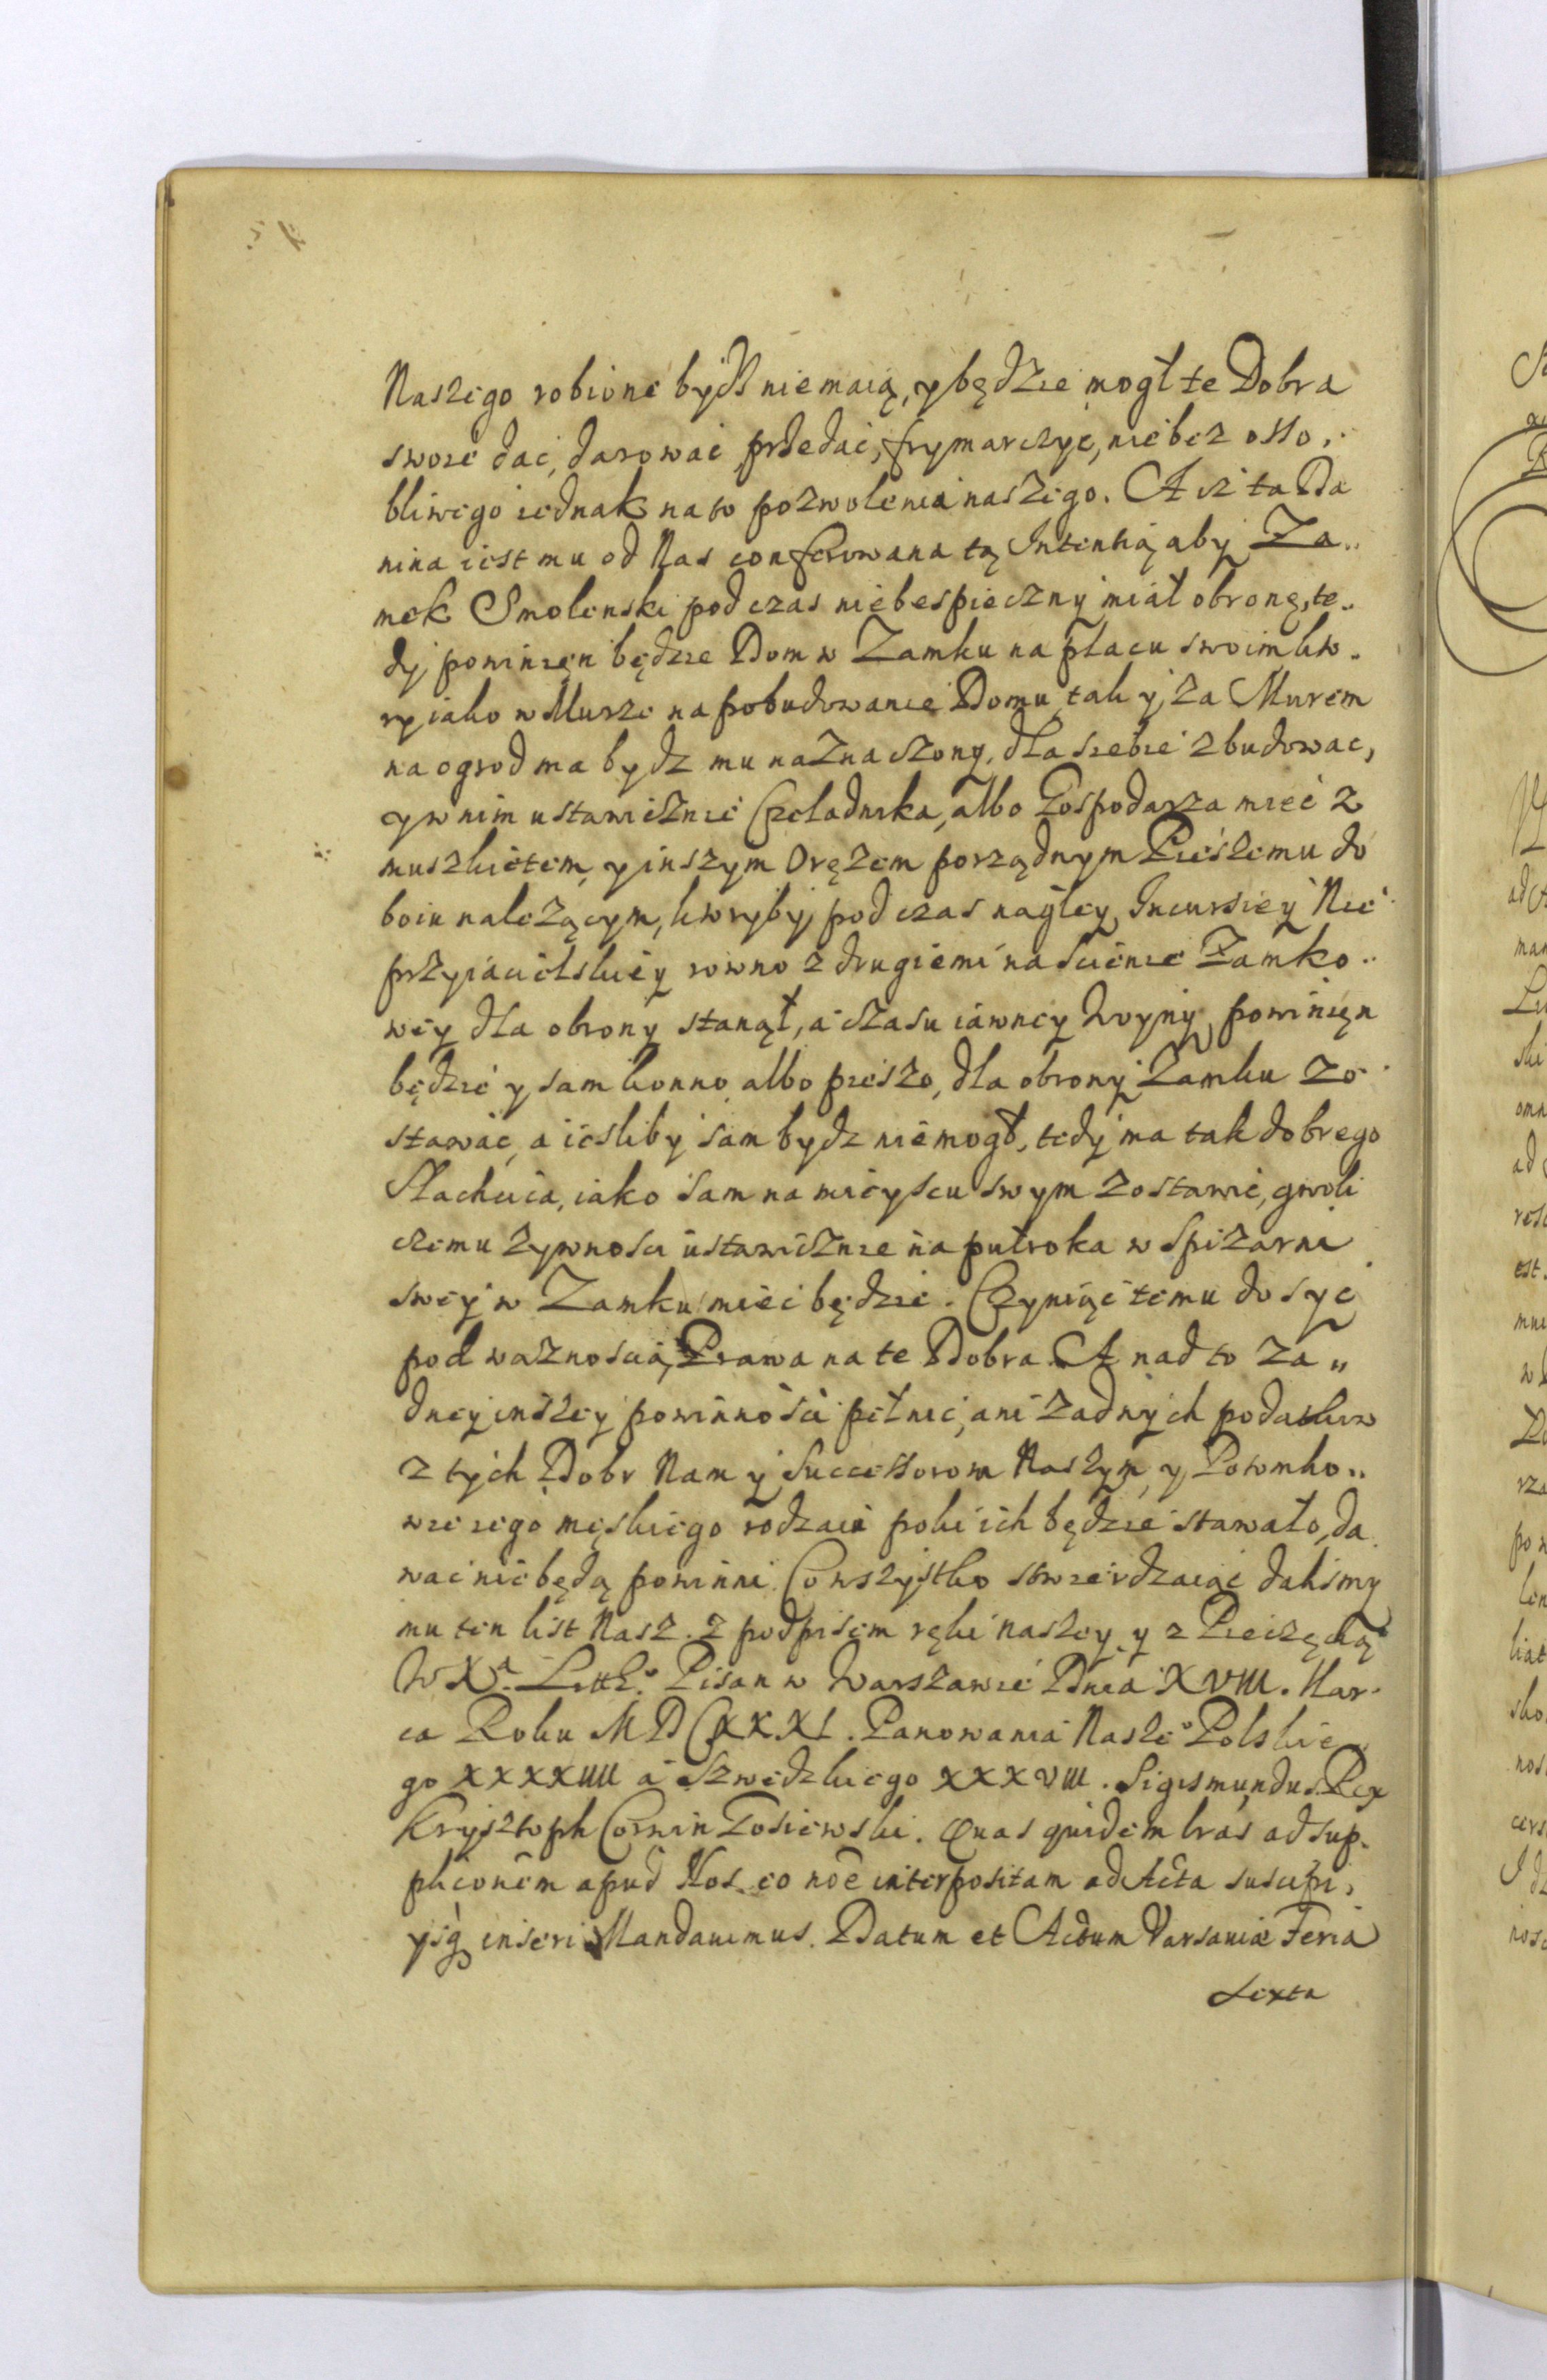 Naszego robione bydź nie maią, y będzie mogł te Dobra
swoie dać, darować, przedać, frymarczyć, nie bez osso,
bliwego iednak na to pozwolenia naszego. A iż ta Da
nina iest mu od Nas conferowana tą Intentią aby Za..
mek Smolenski pod czas niebespieczny miał obronę, te..
dy powinien będzie Dom w Zamku na placu swoim kto.
ry iako w Murze na pobudowanie Domu, tak y za Murem
na ogrod ma bydz mu naznaczony, dla siebie zbudować,
y w nim ustawicznie Czeladnika, albo Gospodarza mieć z
muszkietem, y inszym Orężem porządnym Pieszemu do
boiu należącym, ktoryby pod czas nagłey Incursiey Nie
przyiacielskiey rowno z drugiemi na scienie Zamko..
wey dla obrony stanął, a czasu iawney Woyny powinien
będzie y sam konno albo pieszo, dla obrony Zamku zo
stawać, a iesliby sam bydz nie mogł, tedy ma tak dobrego
Slachcica, iako sam na mieyscu swym zostawić, gwoli
czemu żywnosci ustawicznie na pułroka w Spiżarni
swey w Zamku mieć będzie. Czyniąc temu dosyć
pod ważnoscią Prawa na te Dobra. A nad to ża„
dney inszey powinnosci pełnić, ani żadnych podatkow
z tych Dobr Nam y Successorom Naszym, y Potomko„
wie iego męskiego rodzaiu poki ich będzie stawało, da
wać nie będą powinni. Co wszystko stwierdzaiąc dalismy
mu ten list Nasz. z podpisem ręki naszey y z Pieczęcią
W Xa. Litto. Pisan w Warszawie Dnia XVIII. Mar-
ca Roku MDCXXXI. Panowania Naszeo Polskie„
go XXXXIIII a Szwedzkiego XXXVIII. Sigismundus Rex
Krysztoph Corwin Gosiewski. Quas quidem lras ad sup-
pliconem apud Nos eo noe interpositam ad Acta suscipi,
ysq inseri Mandauimus. Datum et Actum Varsaviæ Feria
Sexta